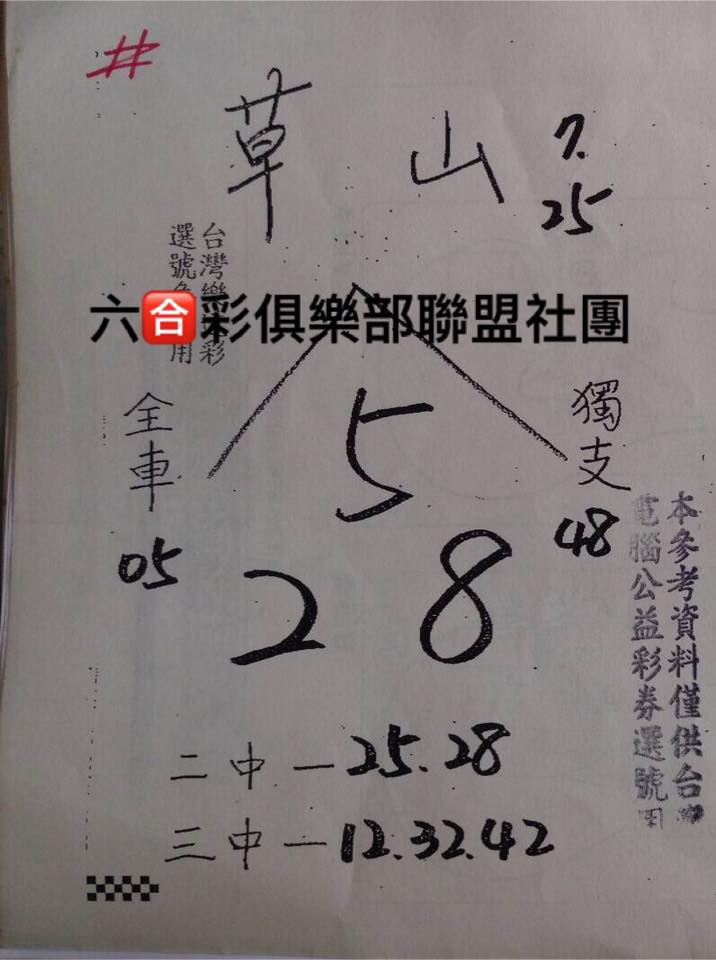 #
草山
7.
25
台灣樂彩
選號用
六🈴彩俱樂部聯盟社團
全車
05
獨支
48
5
2 8
本參考資料僅供台
電腦公益彩券選號用
二中—25.28
三中—12.32.42